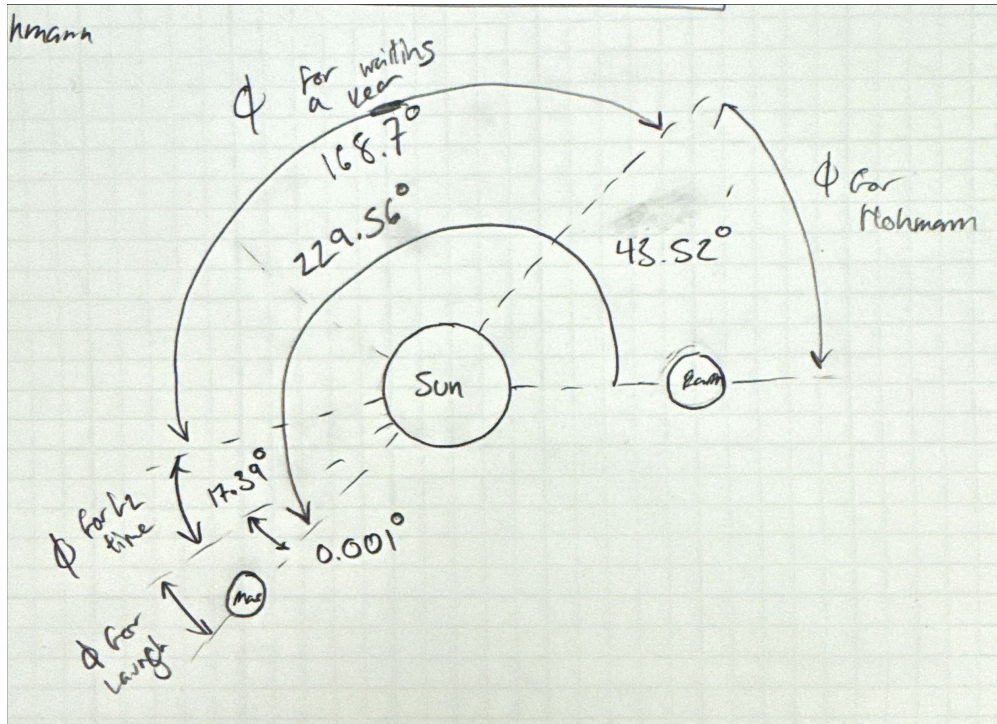 hmann
ϕ for waiting
a year
168.7°
229.56°
43.52°
ϕ for
Hohmann
Sun
Earth
17.39°
ϕ for L2
time
0.001°
Mas
ϕ for
Launch